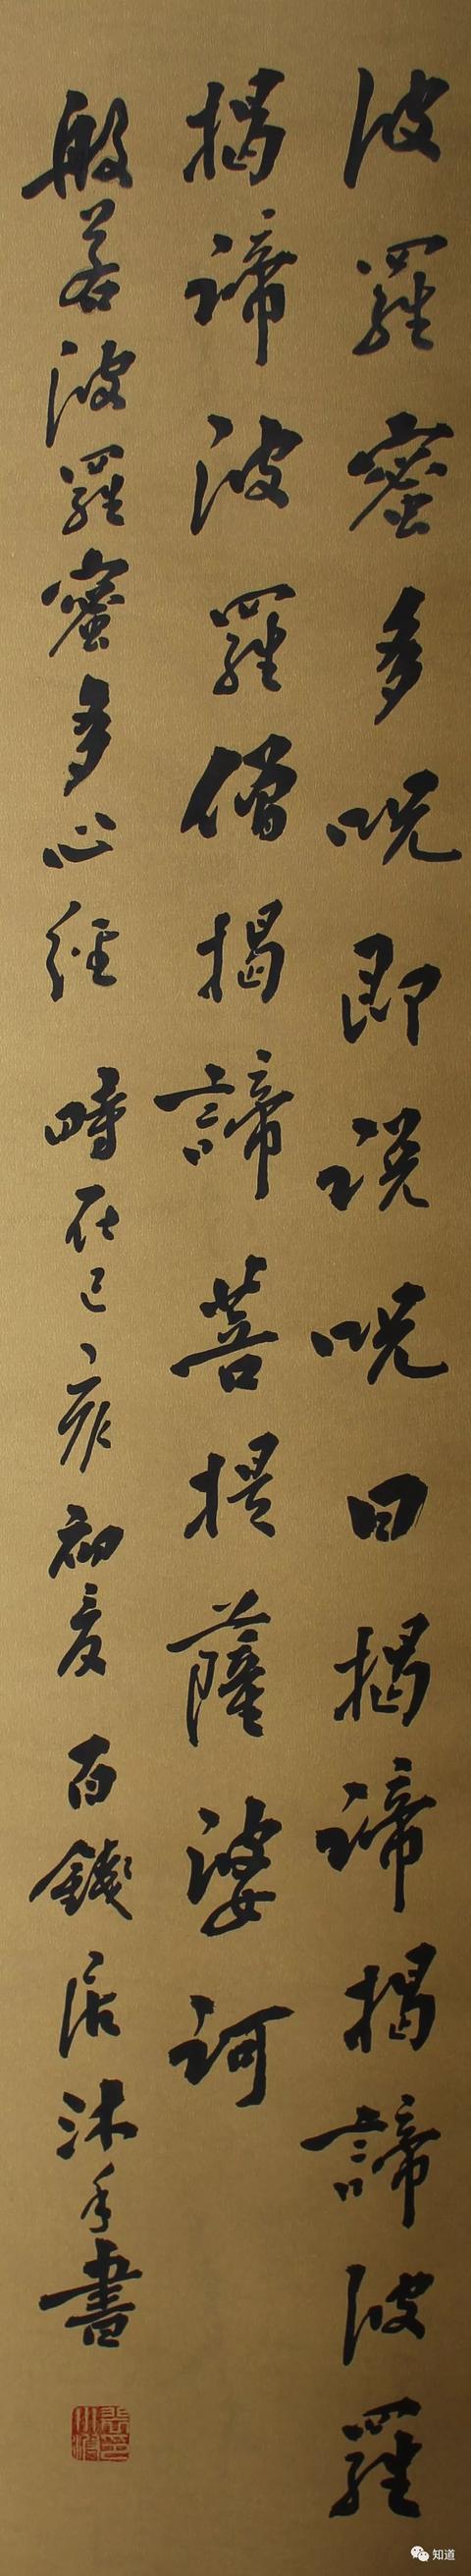 波羅蜜多呪即説呪曰揭諦揭諦波羅
揭諦波羅僧揭諦菩提薩婆訶
般若波羅蜜多心經 時在己亥初夏 百錢居沐手書
知道